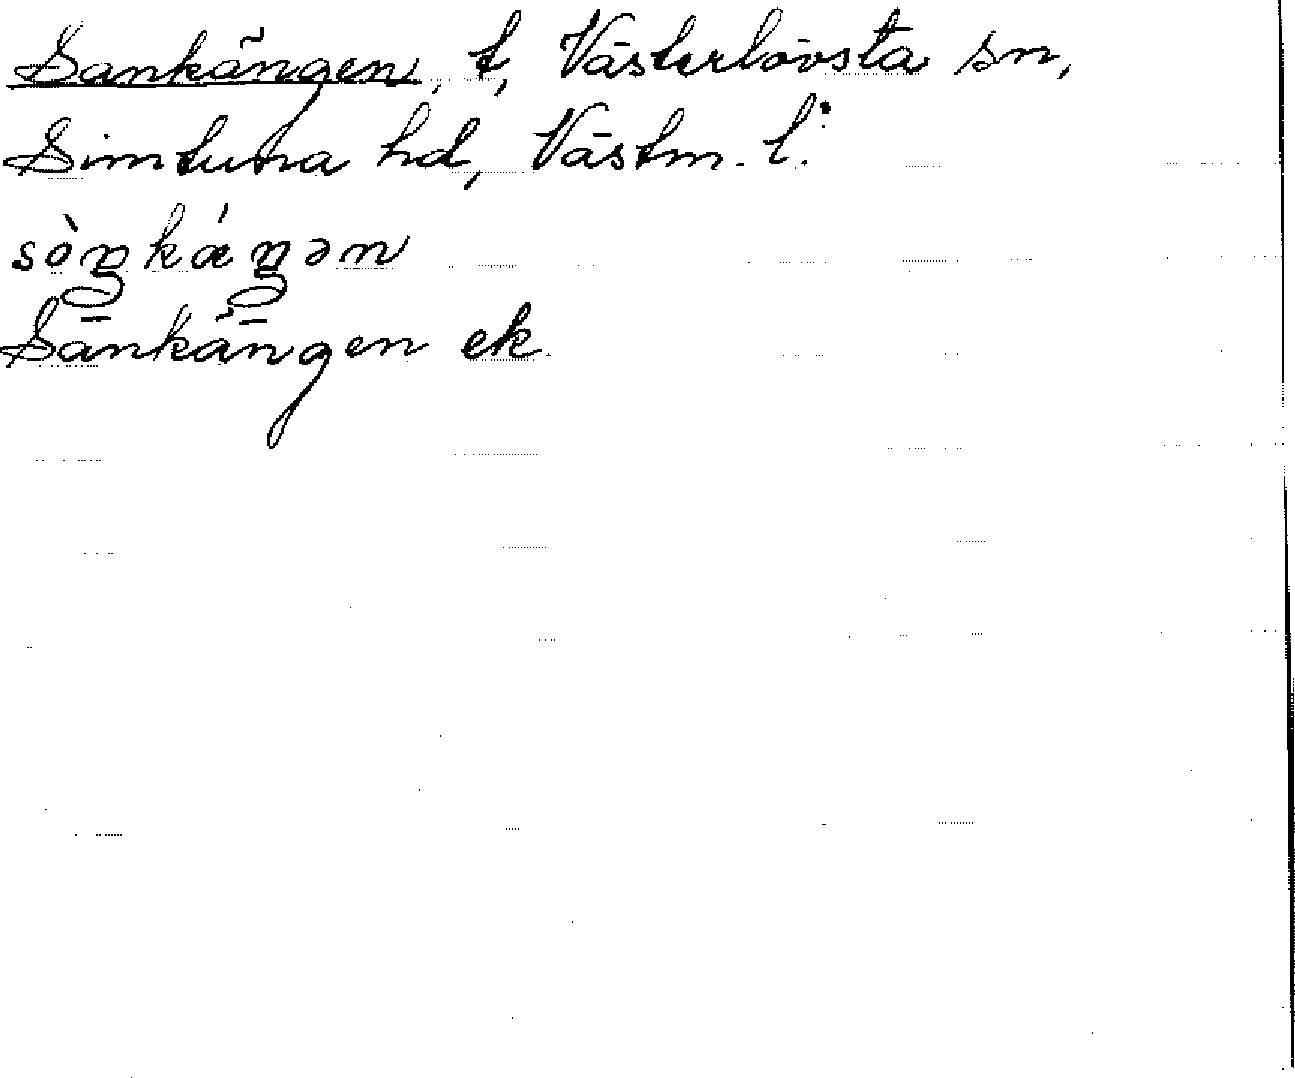 Sankängen, t, Västerlövsta sn,
Simtuna hd, Västm. l:
sòŋkáŋən
Sänkängen ek.